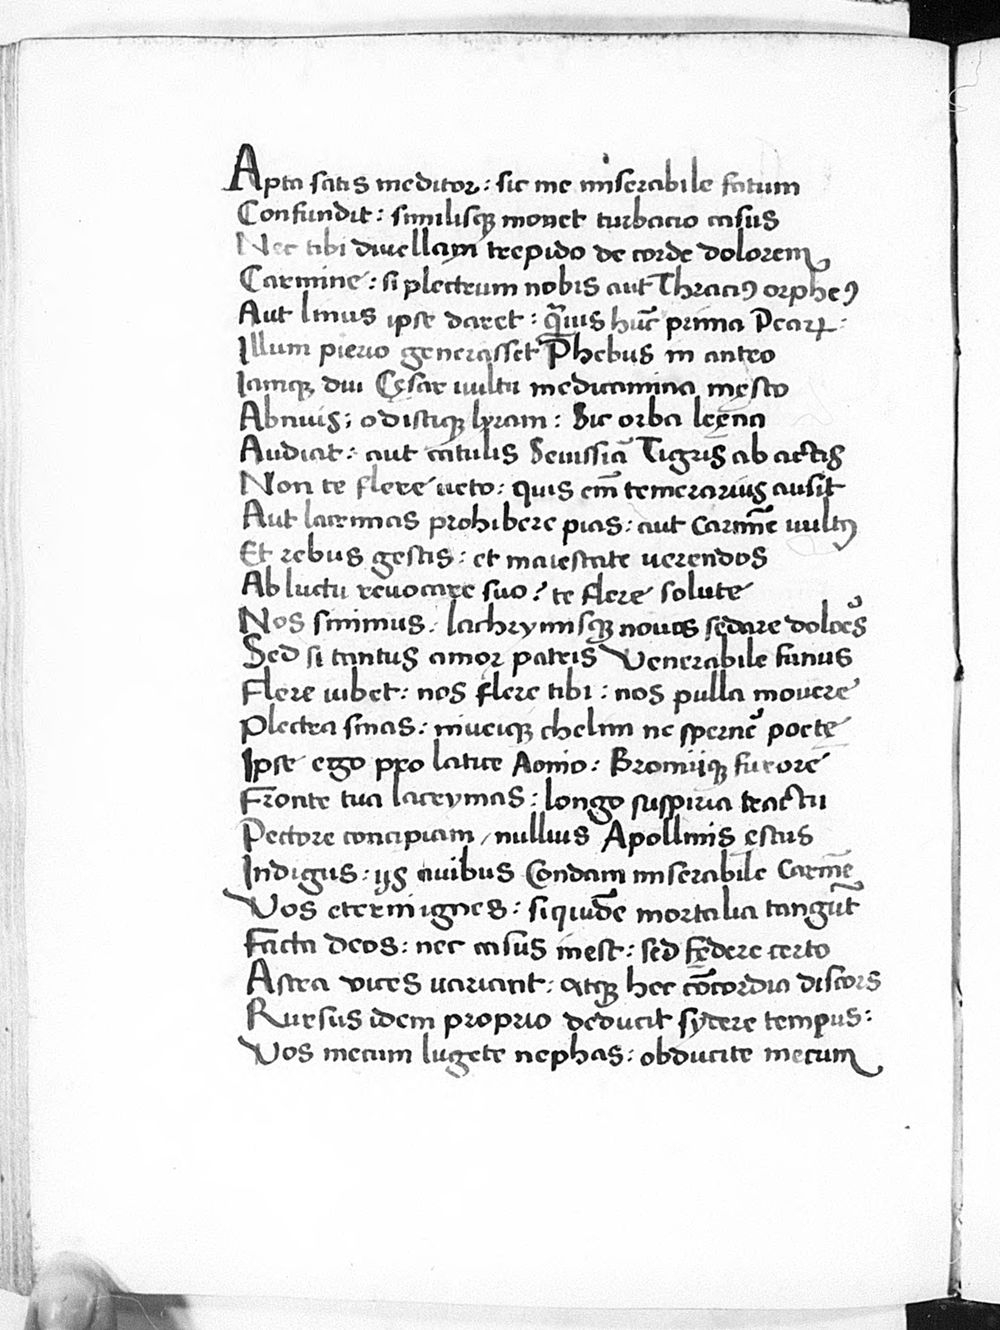 Apta satis meditor : sic me miserabile fatum
Confundit : similisqꝫ monet turbacio casus
Nec tibi diuellam trepido de corde dolorem
Carmine : si plectrum nobis aut Thraciꝰ orpheꝰ
Aut linus ipse daret : qͣuis hūc prima Dearꝝ :
Illum pierio generasset Phebus in antro
Iamqꝫ diui Cęsar uultu medicamina mesto
Abnuis ; odistiqꝫ lyram : Sic orba leęna
Audiat : aut catulis Seuissiā Tigris ab actis
Non te flere ueto : quis em̄ temerarius ausit
Aut lacrimas prohibere pias : aut carmīe uultꝰ
Et rebus gestis : et maiestate uerendos
Ab luctu reuocare suo ? te flere solute
Nos sinimus : lachrymisqꝫ nouos sedare doloꝛes
Sed si tantus amor patris Venerabile funus
Flere iubet : nos flere tibi : nos pulla mouere
Plectra sinas : niueiqꝫ chelim ne sperne᷒ poete
Ipse ergo pro latice Aonio : Bromiiqꝫ furore
Fronte tua lacrymas : longo suspiria tractu
Pectore concipiam / nullius Apollinis ęstus
Indigus : ijs auibus Condam miserabile Carmē
Vos eterni ignes : siquidē mortalia tangūt
Facta deos : nec casus inest : sed fędere certo
Astra vices uariant : atqꝫ hec cōcordia discors
Rursus idem proprio deducit sydere tempus :
Vos mecum lugete nephas : obducite mecum